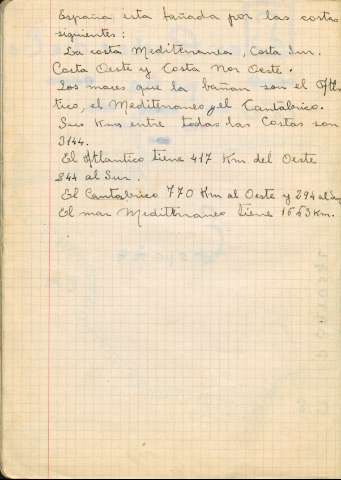 España esta bañada por las costas
siguientes:
La costa Mediterranea, Costa Sur.
Costa Oeste y Costa Nor Oeste.
Los mares que la bañan son el Atlán
tico, el Mediterraneo y el Cantabrico.
Sus Kms entre todas las Costas son
3144.
El Atlantico tiene 417 Km del Oeste
244 al Sur.
El Cantabrico 770 Km al Oeste y 294 al
El mar Mediterraneo tiene 1663 Km.